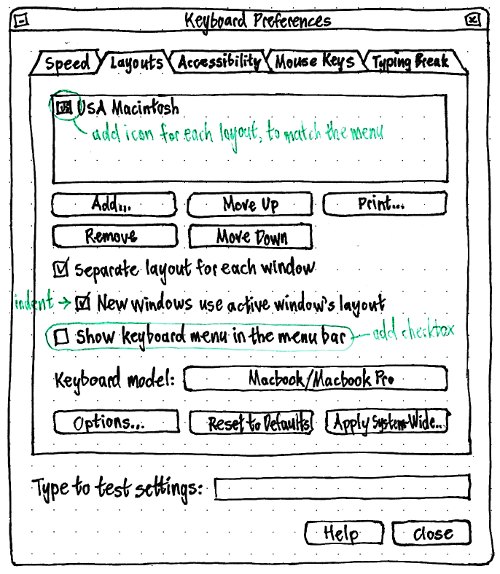 Keyboard Preferences
Speed Layouts Accessibility Mouse Keys Typing Break
USA Macintosh
add icon for each layout, to match the menu
Add... Move Up Print...
Remove Move Down
Separate layout for each window
indent → New windows use active window's layout
Show keyboard menu in the menu bar add checkbox
Keyboard model: Macbook/Macbook Pro
Options... Reset to Defaults Apply System-Wide...
Type to test settings:
Help Close